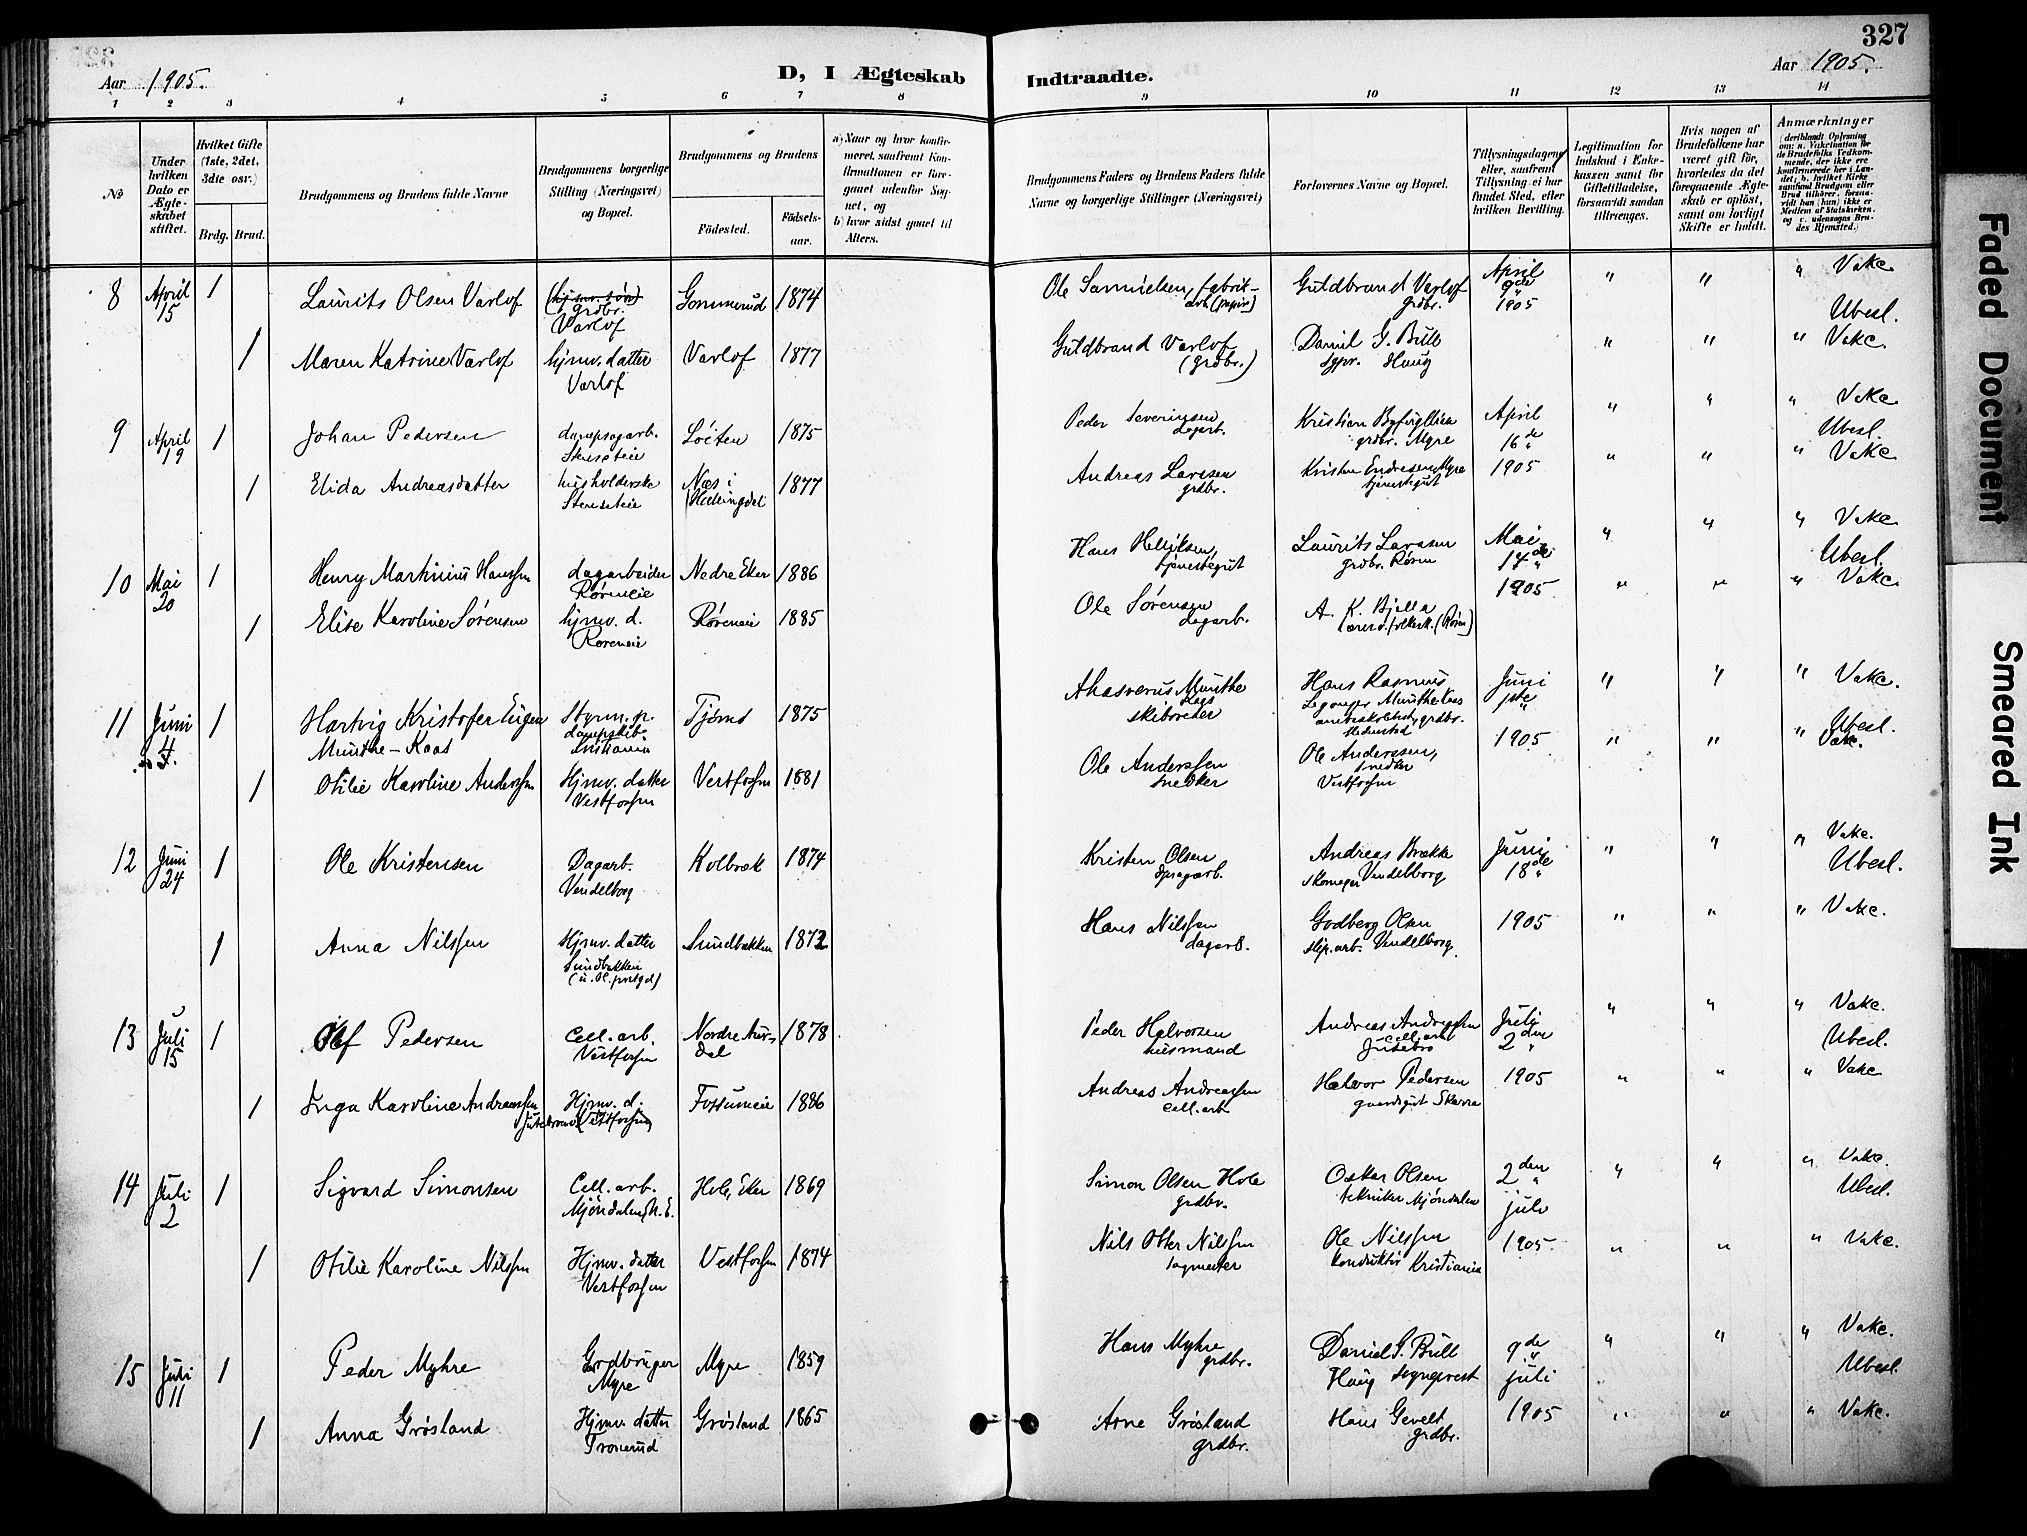 327
Aar 1905.
D, I Ægteskab Indtraadte.
Aar 1905.
1 2 3 4 5 6 7 8 9 10 11 12 13 14
№
Under hvilken Dato er Ægteskabet stiftet.
Hvilket Gifte (1ste, 2det, 3die osv.)
Brdg. Brud.
Brudgommens og Brudens fulde Navne
Brudgommens borgerlige Stilling (Næringsvei) og Bopæl.
Brudgommens og Brudens
Fødested.
Fødselsaar.
a) Naar og hvor konfirmeret, saafremt Konfirmationen er foregaaet udenfor Sognet, og
b) hvor sidst gaaet til Alters.
Brudgommens Faders og Brudens Faders fulde Navne og borgerlige Stillinger (Næringsvei)
Forlovernes Navne og Bopæl.
Tillysningsdagene eller, saafremt Tillysning ei har fundet Sted, efter hvilken Bevilling.
Legitimation for Indskud i Enkekassen samt for Giftetilladelse, forsaavidt saadan tiltrænges.
Hvis nogen af Brudefolkene har været gift før, hvorledes da det foregaaende Ægteskab er opløst, samt om lovligt Skifte er holdt.
Anmærkninger (deriblandt Oplysning om: a. Vakcination for de Brudefolks Vedkommende, der ikke ere konfirmerede her i Landet; b. hvilket Kirkesamfund Brudgom eller Brud tilhører, forsaavidt han (hun) ikke er Medlem af Statskirken, og c. udensogns Brudes Hjemsted.)
8 April 15 1 Laurits Olsen Varlof (hjmv. søn) grdbr. Varlof Gommerud 1874 Ole Samuelsen, fabrikarb. (papir) Guldbrand Varlof grdbr. April 9de 1905 " " " Vakc. Ubesl.
1 Maren Katrine Varlof hjmv. datter Varlof Varlof 1877 Guldbrand Varlof (grdbr.) Daniel G. Bull sgpr. Haug " " " Vakc.
9 April 19 1 Johan Pedersen dampsagarb. Stenseteie Løiten 1875 Peder Severinsen dagarb. Kristian grdbr. Myre April 16de 1905 " " " Vakc. Ubesl.
1 Elida Andreasdatter husholderske Stenseteie Næs i Hallingdal 1877 Andreas Larssen grdbr. Kristen Endresen Myre tjenestegut " " " Vakc.
10 Mai 20 1 Henry Martinius Hanssen dagarbeider Røreneie Nedre Eker 1886 Hans Helliksen, tjenestegut Laurits Larssen grdbr. Røren Mai 14de 1905 " " " Vakc. Ubesl.
1 Elise Karoline Sørensen hjmv. d. Røreneie Røreneie 1885 Ole Sørensen dagarb. A. K. Bjella (Røren) " " " Vakc.
11 Juni 4 1 Hartvig Kristofer Eugen Munthe-Kaas Styrm. p. dampskib Kristiania Tjømø 1875 Ahasverus Munthe Kaas skibsreder Hans Rasmus Munthe-Kaas grdbr. Juni 1ste 1905 " " " Vakc. Ubesl.
1 Otilie Karoline Anderssen Hjmv. datter Vestfossen Vestfossen 1881 Ole Anderssen snedker Ole Anderssen, snedker Vestfossen " " " Vakc.
12 Juni 24 1 Ole Kristensen Dagarb. Vendelborg Kolbræk 1874 Kristen Olsen Andreas Brække skomager Vendelborg Juni 18de 1905 " " " Vakc. Ubesl.
1 Anna Nilssen Hjmv. datter Sundbakken Sundbakken 1872 Hans Nilssen dagarb. Godberg Olsen slip.arb. Vendelborg " " " Vakc.
13 Juli 15 1 Olaf Pedersen Cell. arb. Vestfossen Nordre Aurdal 1878 Peder Halvorsen husmand Andreas Andreassen cell. arb. Juli 2den 1905 " " " Vakc. Ubesl.
1 Inga Karoline Andreassen Hjmv. d. (Vestfossen) Fossumeie 1886 Andreas Andreassen cell. arb. Halvor Pedersen gaardsgut " " " Vakc
14 Juli 2 1 Sigvard Simonsen Cell. arb. Mjøndalen, N. E. Hole, Eker 1869 Simon Olsen Hole grdbr. Oskar Olsen tekniker Mjøndalen 2den juli 1905 " " " Vakc. Ubesl.
1 Otilie Karoline Nilssen Hjmv. datter Vestfossen Vestfossen 1874 Nils Otter Nilssen sagmester Ole Nilssen konduktør Kristiania " " " Vakc.
15 Juli 11 1 Peder Myhre Grdbruger Myre Myre 1859 Hans Myhre grdbr. Daniel G. Bull Haug sogneprest 9de juli 1905 " " " Vakc. Ubesl.
1 Anna Grøsland Hjmv. datter Tronerud Grøsland 1865 Arne Grøsland grdbr. Hans Gevelt grdbr. " " " Vakc.
Faded Document
Smeared Ink